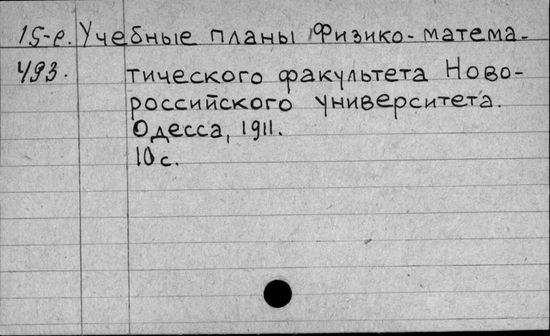 15-е. Учебные планы Физико-матема-
493. тического факультета Ново-
российского университета.
Одесса, 1911.
10 с.